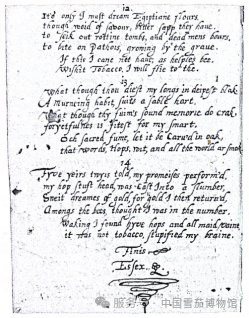 12.
Itd only I must dream Egiptians flours,
though void of savour, bitter sapp they have.
to seik out rotting tombs, and dead mens bours,
to bite on Pathois, growing by the grave.
If this I cane not have, as helples bee,
Wished Tobacco, I will flie to the.
13.
What though thou diest my longs in deipest blak
A Murning habit, suits a sable hart.
What though thy fuims sound memorie do crak
forgetfulnes is fitest for my smart.
Och sacred fume, let it be Carv'd in oak,
that words, Hops, wit, and all the world ar smok
14.
Fyve yeirs twys told, my promeises perform'd,
my hop stuft head, was Cast Into a slumber,
Sweit dreames of gold, for gold I then return'd,
Amongs the bees thought I was in the number.
Waking I found hyve hops and all maid vaine,
it Has not tobacco stupified my braine.
Finis
Essex.
中国雪茄博物馆